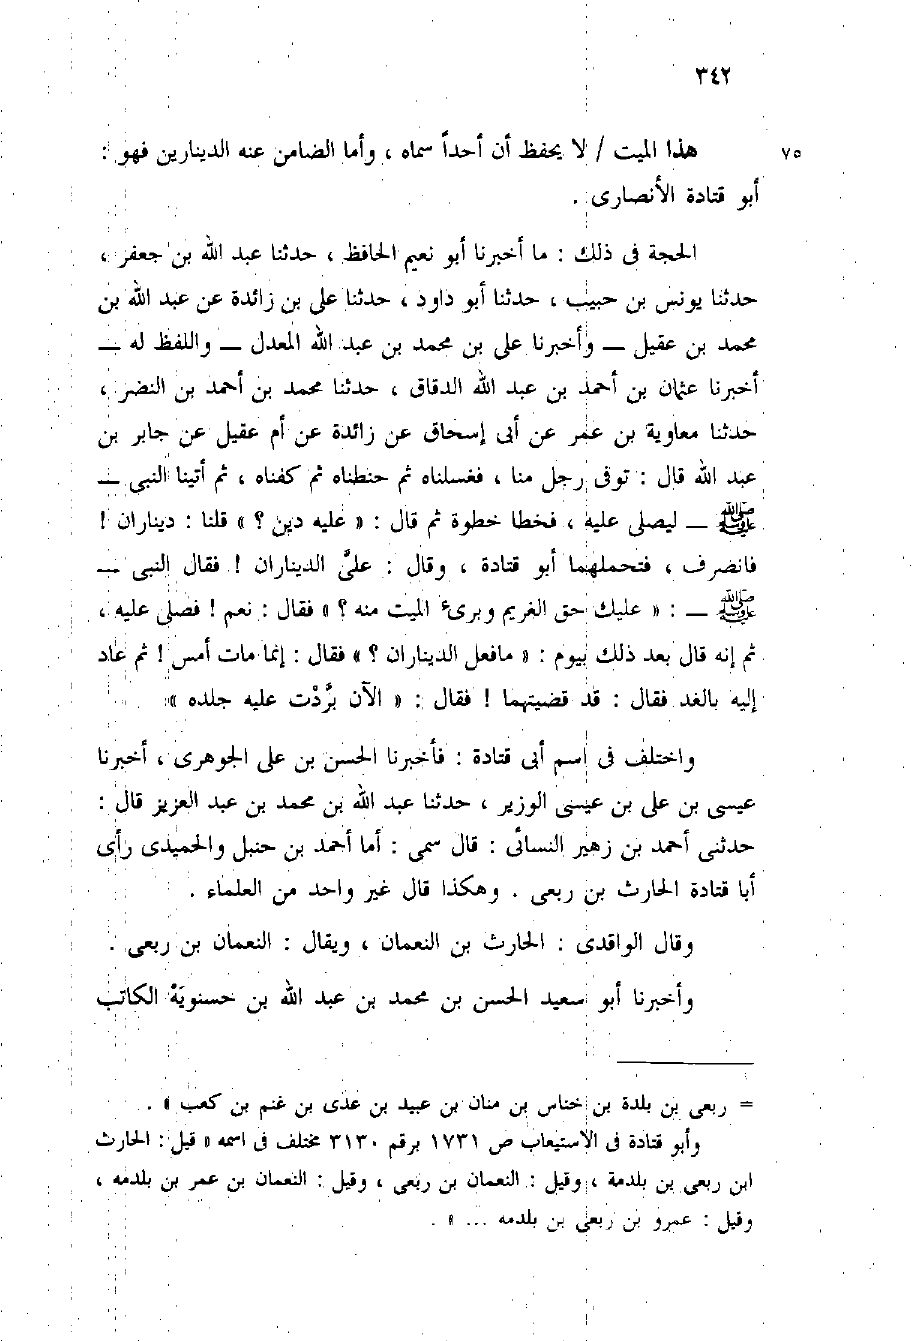 ٣٤٢
٧٥ هذا الميت / لا يحفظ أن أحداً سماه ، وأما الضامن عنه الدينارين فهو :
أبو قتادة الأنصارى .
الحجة فى ذلك : ما أخبرنا أبو نعيم الحافظ ، حدثنا عبد الله بن جعفر ،
حدثنا يونس بن حبيب ، حدثنا أبو داود ، حدثنا على بن زائدة عن عبد الله بن
محمد بن عقيل ــ وأخبرنا على بن محمد بن عبد الله المعدل ــ واللفظ له ــ
أخبرنا عثمان بن أحمد بن عبد الله الدقاق ، حدثنا محمد بن أحمد بن النضر ،
حدثنا معاوية بن عمر عن أبى إسحاق عن زائدة عن أم عقيل عن جابر بن
عبد الله قال : توفى رجل منا ، فغسلناه ثم حنطناه ثم كفناه ، ثم أتينا النبى ــ
ﷺ ــ ليصلى عليه ، فخطا خطوة ثم قال : « عليه دين ؟ » قلنا : ديناران !
فانصرف ، فتحملهما أبو قتادة ، وقال : علىَّ الديناران ! فقال النبى ــ
ﷺ ــ : « عليك حق الغريم وبرىء الميت منه ؟ » فقال : نعم ! فصلى عليه ،
ثم إنه قال بعد ذلك بيوم : « مافعل الديناران ؟ » فقال : إنما مات أمس ! ثم عاد
إليه بالغد فقال : قد قضيتهما ! فقال : « الآن بَرَّدْت عليه جلده »
واختلف فى اسم أبى قتادة : فأخبرنا الحسن بن على الجوهرى ، أخبرنا
عيسى بن على بن عيسى الوزير ، حدثنا عبد الله بن محمد بن عبد العزيز قال :
حدثنى أحمد بن زهير النسائى : قال سمى : أما أحمد بن حنبل والحميدى رأى
أبا قتادة الحارث بن ربعى . وهكذا قال غير واحد من العلماء .
وقال الواقدى : الحارث بن النعمان ، ويقال : النعمان بن ربعى .
وأخبرنا أبو سعيد الحسن بن محمد بن عبد الله بن حسنويَهْ الكاتب
= ربعى بن بلدة بن خناس بن منان بن عبيد بن عدى بن غنم بن كعب » .
وأبو قتادة فى الاستيعاب ص ١٧٣١ برقم ٣١٣٠ مختلف فى اسمه « قيل : الحارث
ابن ربعى بن بلدمة ، وقيل : النعمان بن ربعى ، وقيل : النعمان بن عمر بن بلدمه ،
وقيل : عمرو بن ربعى بن بلدمه ... » .